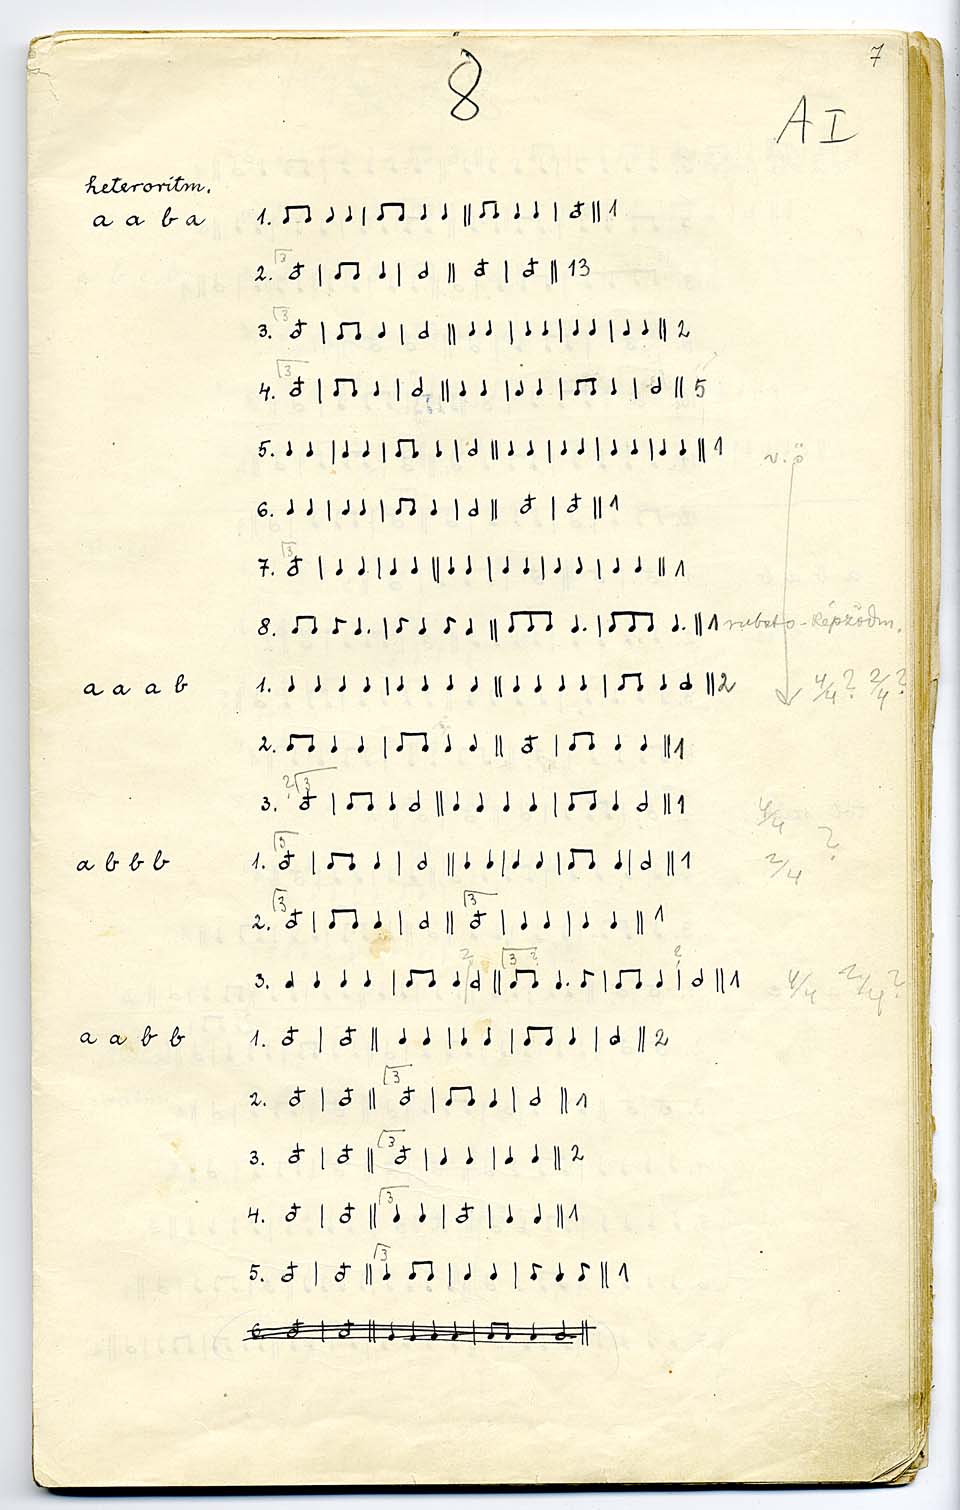 7
8
A I
heteroritm.
a a b a
1. 1
2. 13
3. 2
4. 5
5. 1
v. ö
6. 1
7. 1
8. 1 rubato-képződm.
a a a b
1. 2 4/4? 2/4?
2. 1
3. 1 4/4
a b b b
1. 1 2/4 ?
2. 1
3. 1 4/4 - 2/4?
a a b b
1. 2
2. 1
3. 2
4. 1
5. 1
6.